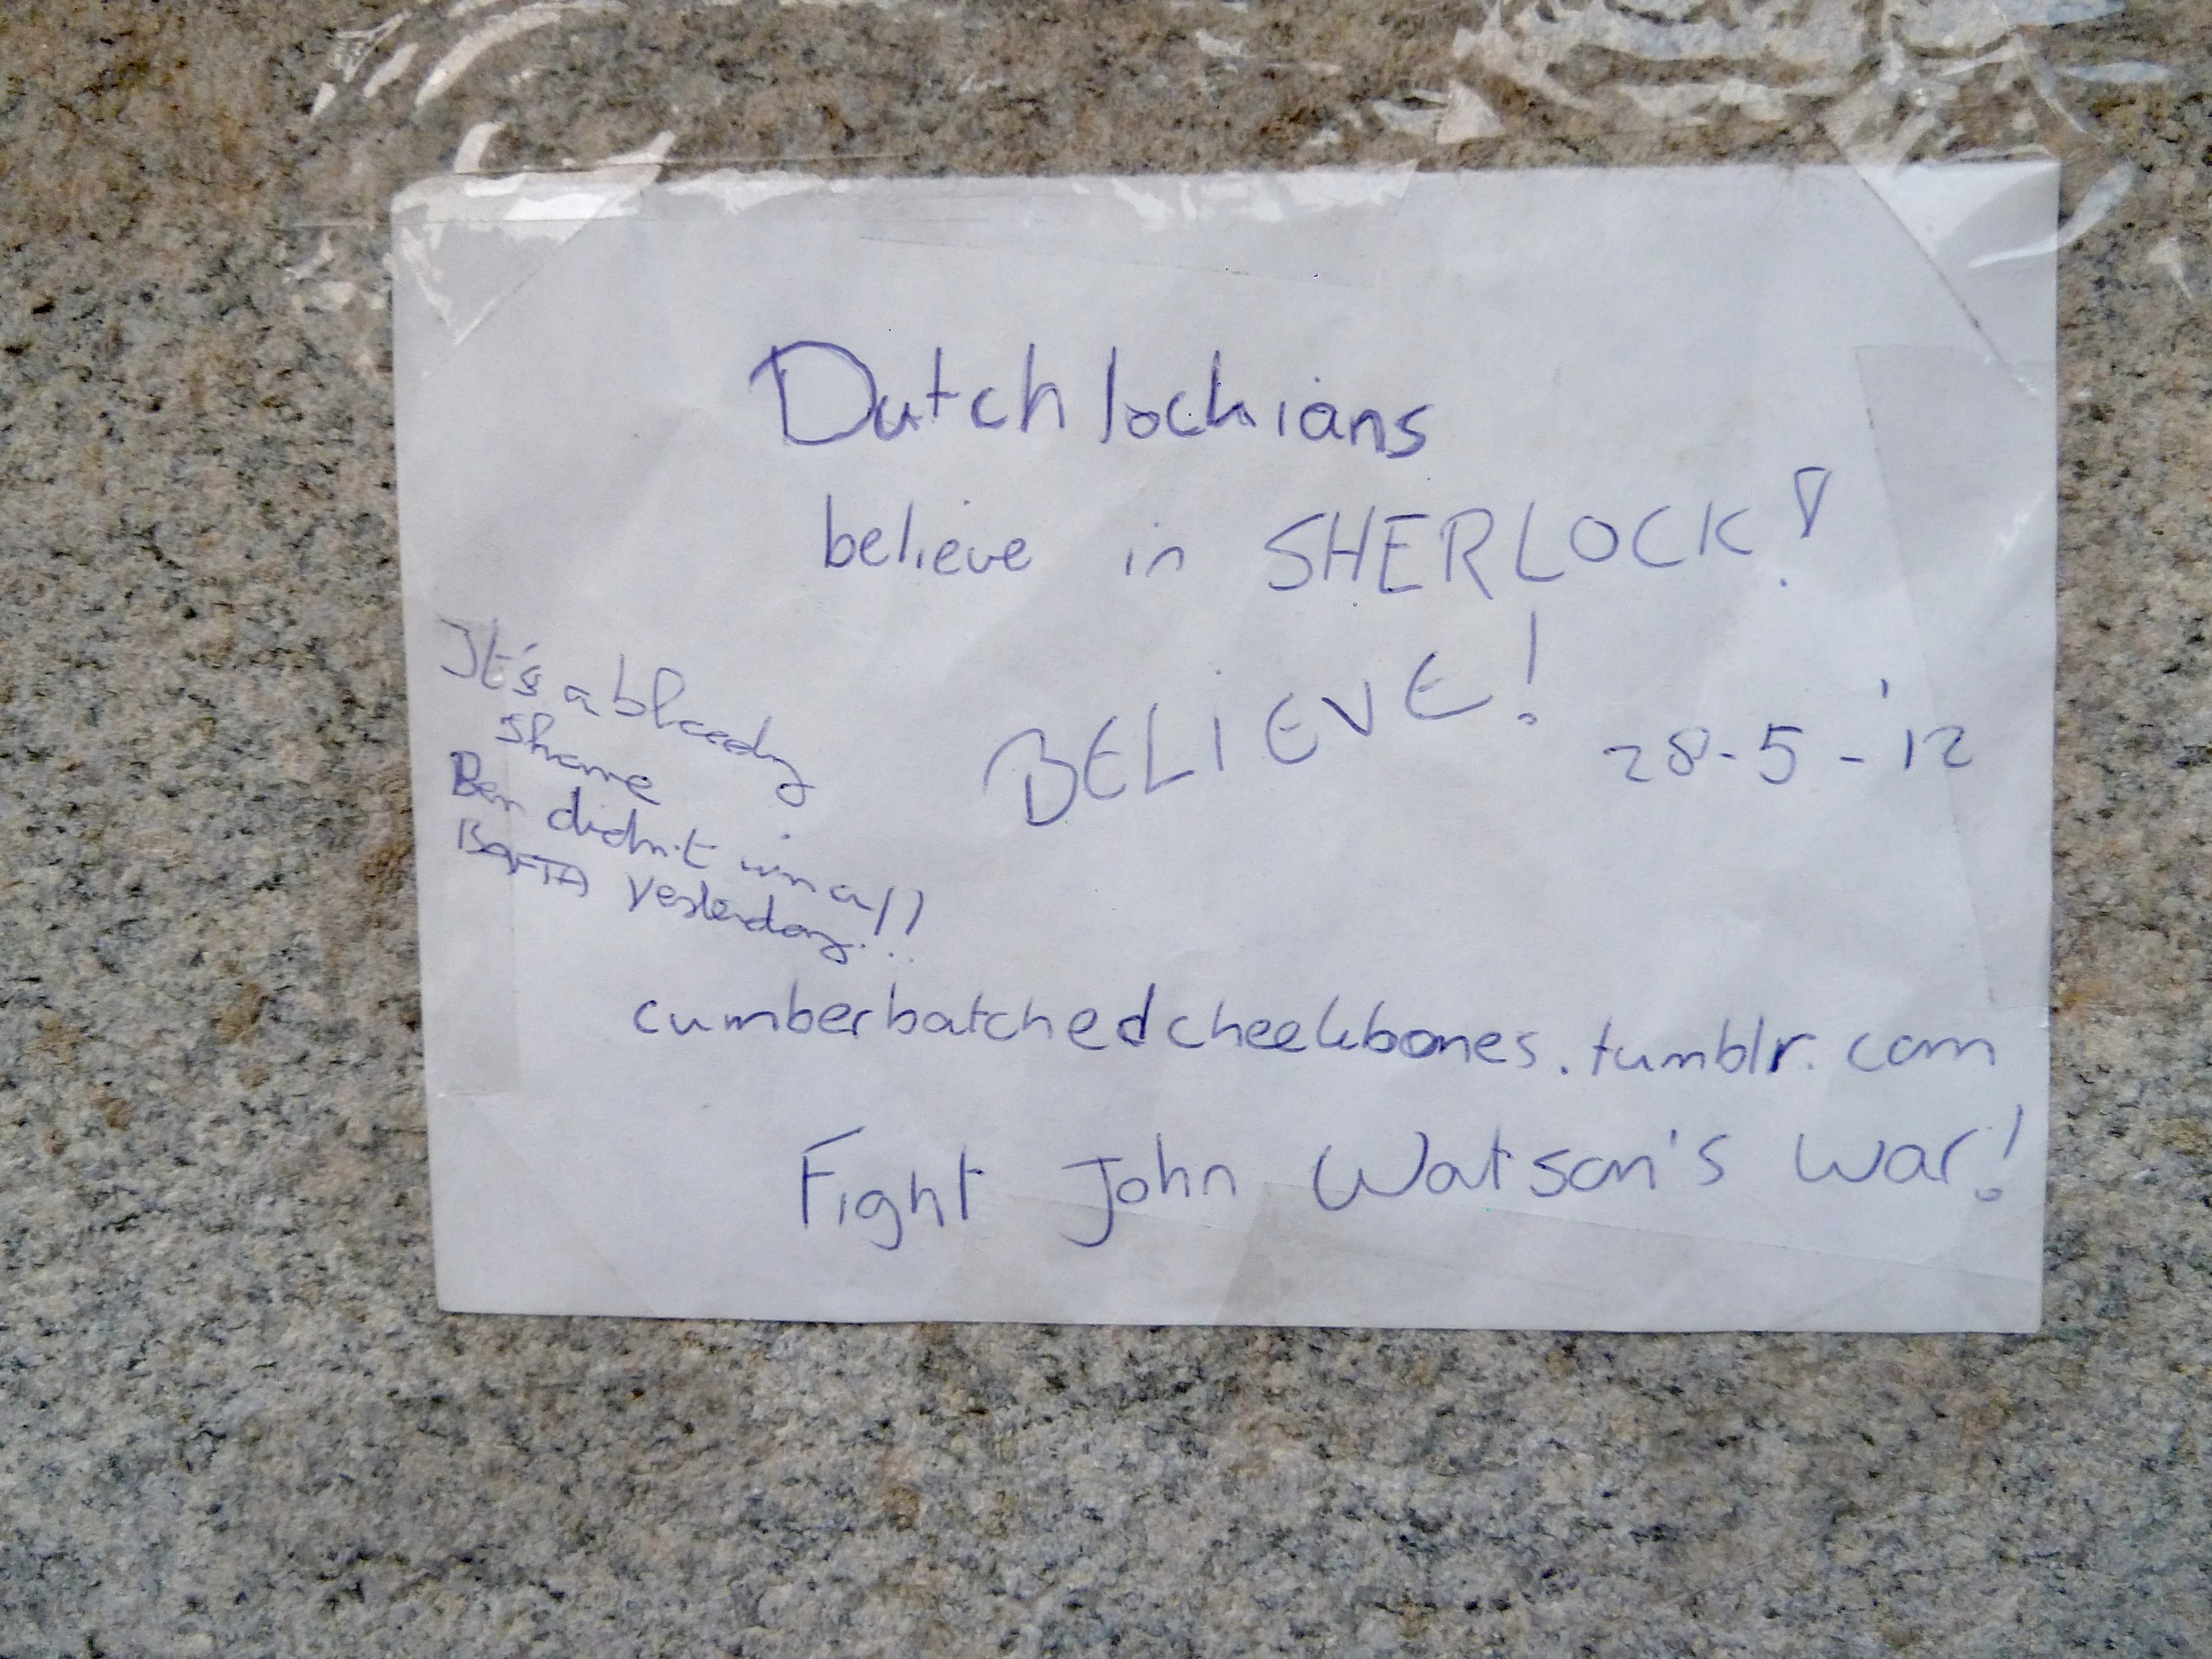 Dutchlockians
believe in SHERLOCK!
BELiEVE!
28-5-'12
It's a bloody
shame
Ben didn't win a
BAFTA yesterday!!
cumberbatchedcheekbones.tumblr.com
Fight John Watson's war!